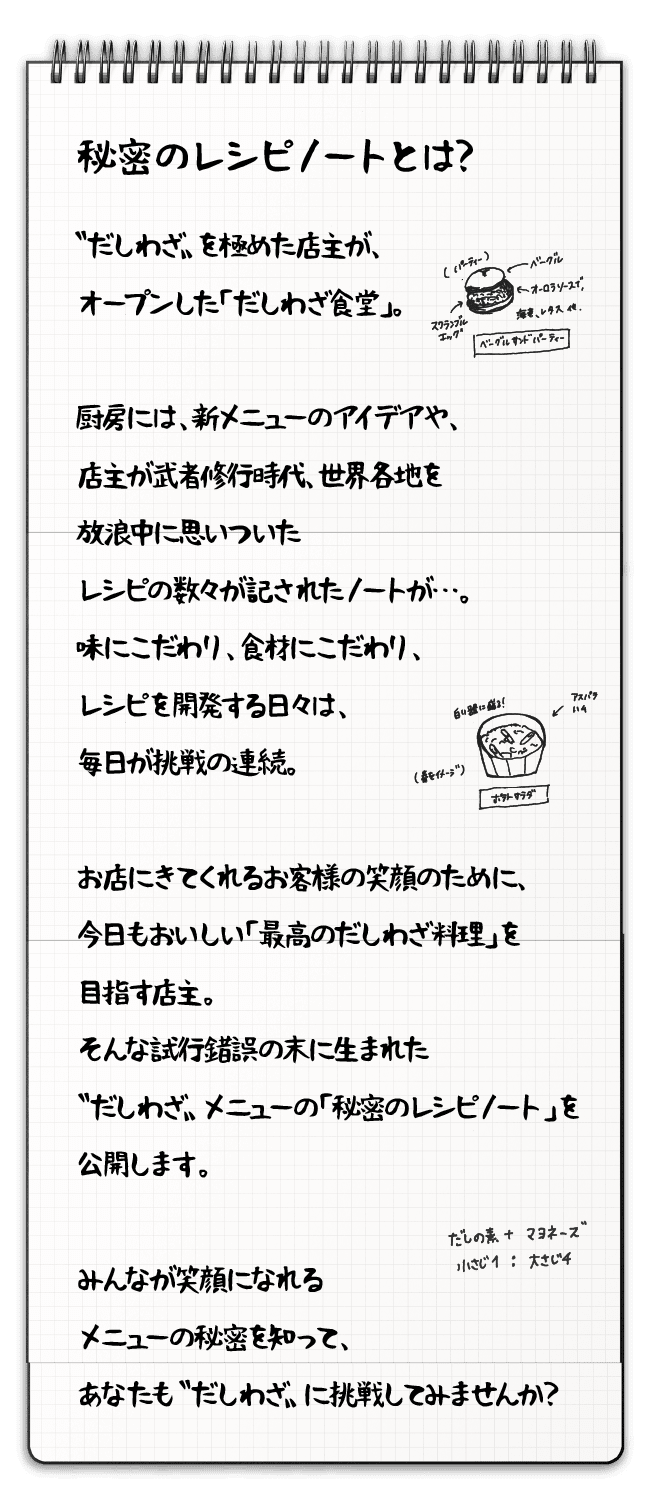 秘密のレシピノートとは?
〝だしわざ〟を極めた店主が、
オープンした「だしわざ食堂」。
(パーティー)
ベーグル
オーロラソースで、
海老、レタス 他.
スクランブル
エッグ
ベーグルサンドパーティー
厨房には、新メニューのアイデアや、
店主が武者修行時代、世界各地を
放浪中に思いついた
レシピの数々が記されたノートが…。
味にこだわり、食材にこだわり、
レシピを開発する日々は、
毎日が挑戦の連続。
アスパラ
白い器に盛る!
(春をイメージ)
ポテトサラダ
お店にきてくれるお客様の笑顔のために、
今日もおいしい「最高のだしわざ料理」を
目指す店主。
そんな試行錯誤の末に生まれた
〝だしわざ〟メニューの「秘密のレシピノート」を
公開します。
だしの素 + マヨネーズ
小さじ1 : 大さじ4
みんなが笑顔になれる
メニューの秘密を知って、
あなたも〝だしわざ〟に挑戦してみませんか?